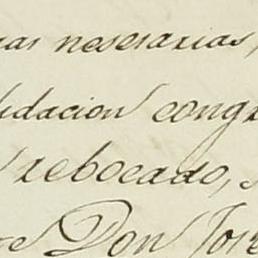 nas nesesarias,
lidacion congr
rebocado, s
Don Jose